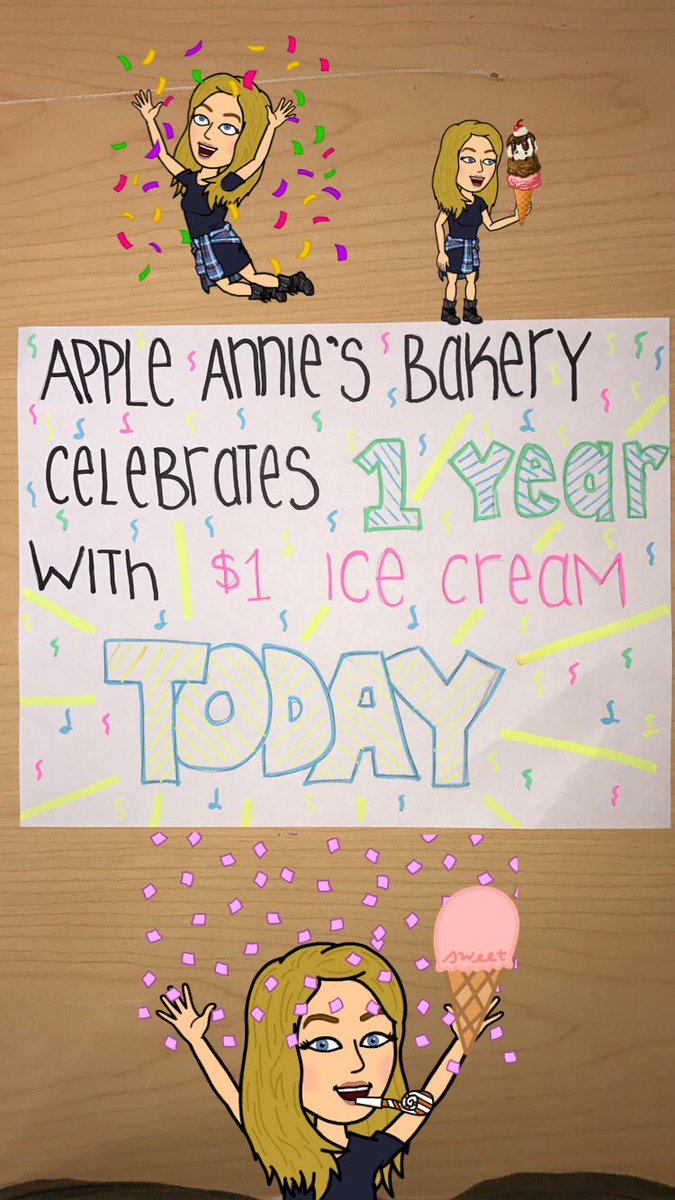 APPLE ANNIE'S BAKERY
CELEBRATES 1 Year
WITH $1 ICE CREAM
TODAY
sweet